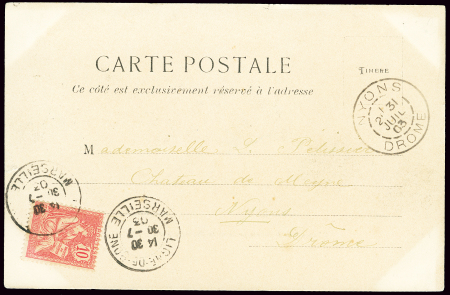 CARTE POSTALE
Ce côté est exclusivement réservé à l'adresse
TIMBRE
NYONS
2 31
JUIL
03
DROME
Mademoiselle L.
Château de
Nyons
Drôme
MARSEILLE
03
30-7
14 30
LIGNE-DE-
MARSEILLE
03
30-7
14 30
10